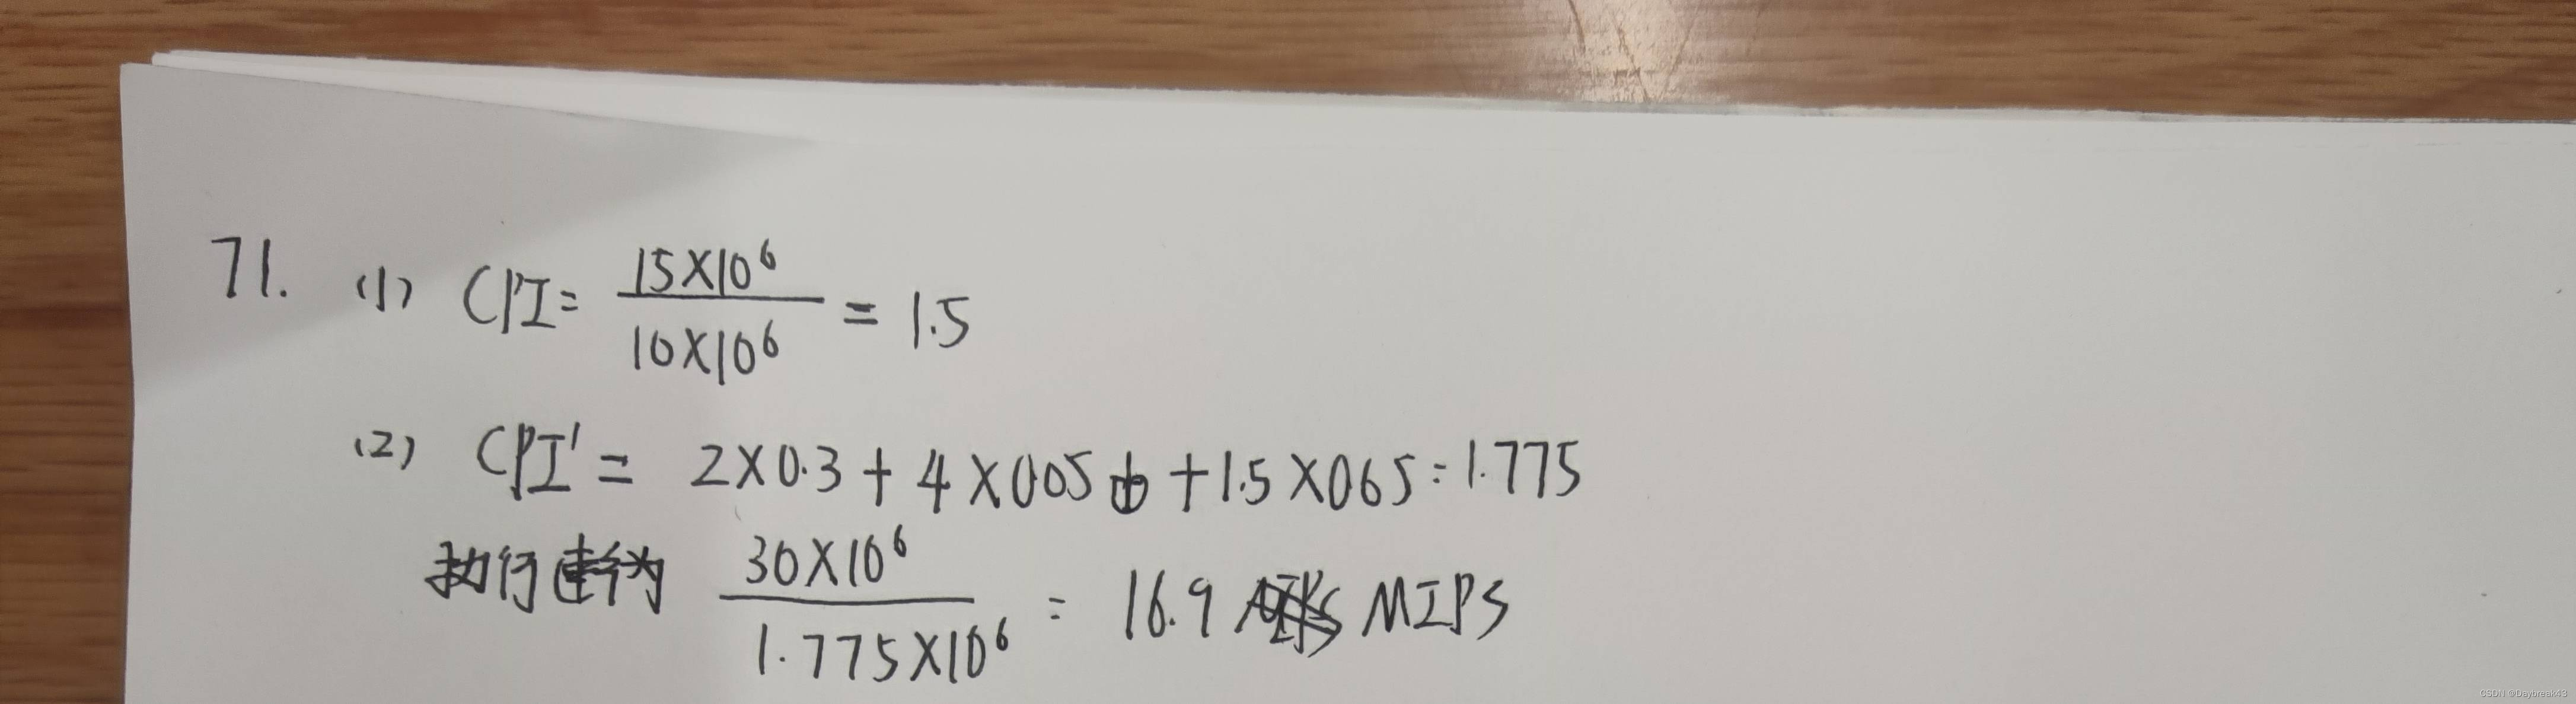 71. (1) CPI = 15×10⁶ / 10×10⁶ = 1.5
(2) CPI' = 2×0.3 + 4×0.05 + 1.5×0.65 = 1.775
执行速率为 30×10⁶ / 1.775×10⁶ = 16.9 MIPS
CSDN @Daybreak43